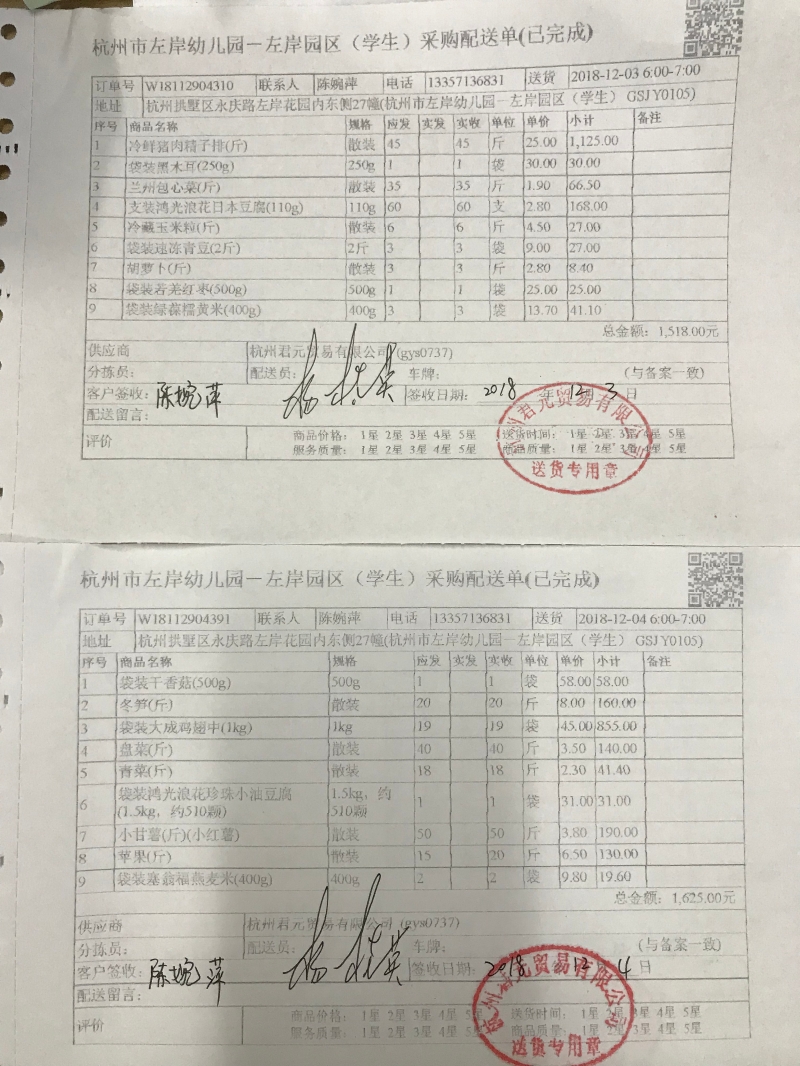 杭州市左岸幼儿园-左岸园区（学生）采购配送单(已完成)
订单号 W18112904310 联系人 陈婉萍 电话 13357136831 送货 2018-12-03 6:00-7:00
地址 杭州拱墅区永庆路左岸花园内东侧27幢(杭州市左岸幼儿园-左岸园区（学生） GSJY0105)
序号 商品名称 规格 应发 实发 实收 单位 单价 小计 备注
1 冷鲜猪肉精子排(斤) 散装 45 45 斤 25.00 1,125.00
2 袋装黑木耳(250g) 250g 1 1 袋 30.00 30.00
3 兰州包心菜(斤) 散装 35 35 斤 1.90 66.50
4 支装鸿光浪花日本豆腐(110g) 110g 60 60 支 2.80 168.00
5 冷藏玉米粒(斤) 散装 6 6 斤 4.50 27.00
6 袋装速冻青豆(2斤) 2斤 3 3 袋 9.00 27.00
7 胡萝卜(斤) 散装 3 3 斤 2.80 8.40
8 袋装若羌红枣(500g) 500g 1 1 袋 25.00 25.00
9 袋装绿葆糯黄米(400g) 400g 3 3 袋 13.70 41.10
总金额：1,518.00元
供应商 杭州君元贸易有限公司(gys0737)
分拣员： 配送员： 车牌： (与备案一致)
客户签收：陈婉萍 签收日期： 2018 年 12 月 3 日
配送留言：
评价 商品价格： 1星 2星 3星 4星 5星 送货时间： 1星 2星 3星 4星 5星
服务质量： 1星 2星 3星 4星 5星 商品质量： 1星 2星 3星 4星 5星
杭州君元贸易有限公司
送货专用章
杭州市左岸幼儿园-左岸园区（学生）采购配送单(已完成)
订单号 W18112904391 联系人 陈婉萍 电话 13357136831 送货 2018-12-04 6:00-7:00
地址 杭州拱墅区永庆路左岸花园内东侧27幢(杭州市左岸幼儿园-左岸园区（学生） GSJY0105)
序号 商品名称 规格 应发 实发 实收 单位 单价 小计 备注
1 袋装干香菇(500g) 500g 1 1 袋 58.00 58.00
2 冬笋(斤) 散装 20 20 斤 8.00 160.00
3 袋装大成鸡翅中(1kg) 1kg 19 19 袋 45.00 855.00
4 盘菜(斤) 散装 40 40 斤 3.50 140.00
5 青菜(斤) 散装 18 18 斤 2.30 41.40
6 袋装鸿光浪花珍珠小油豆腐 1.5kg，约 1 1 袋 31.00 31.00
(1.5kg，约510颗) 510颗
7 小甘薯(斤)(小红薯) 散装 50 50 斤 3.80 190.00
8 苹果(斤) 散装 15 20 斤 6.50 130.00
9 袋装塞翁福燕麦米(400g) 400g 2 2 袋 9.80 19.60
总金额：1,625.00元
供应商 杭州君元贸易有限公司 (gys0737)
分拣员： 配送员： 车牌： (与备案一致)
客户签收：陈婉萍 签收日期： 2018 12 4 日
配送留言：
评价 商品价格： 1星 2星 3星 4星 5星 送货时间： 1星 2星 3星 4星 5星
服务质量： 1星 2星 3星 4星 5星 商品质量： 1星 2星 3星 4星 5星
杭州君元贸易有限公司
送货专用章